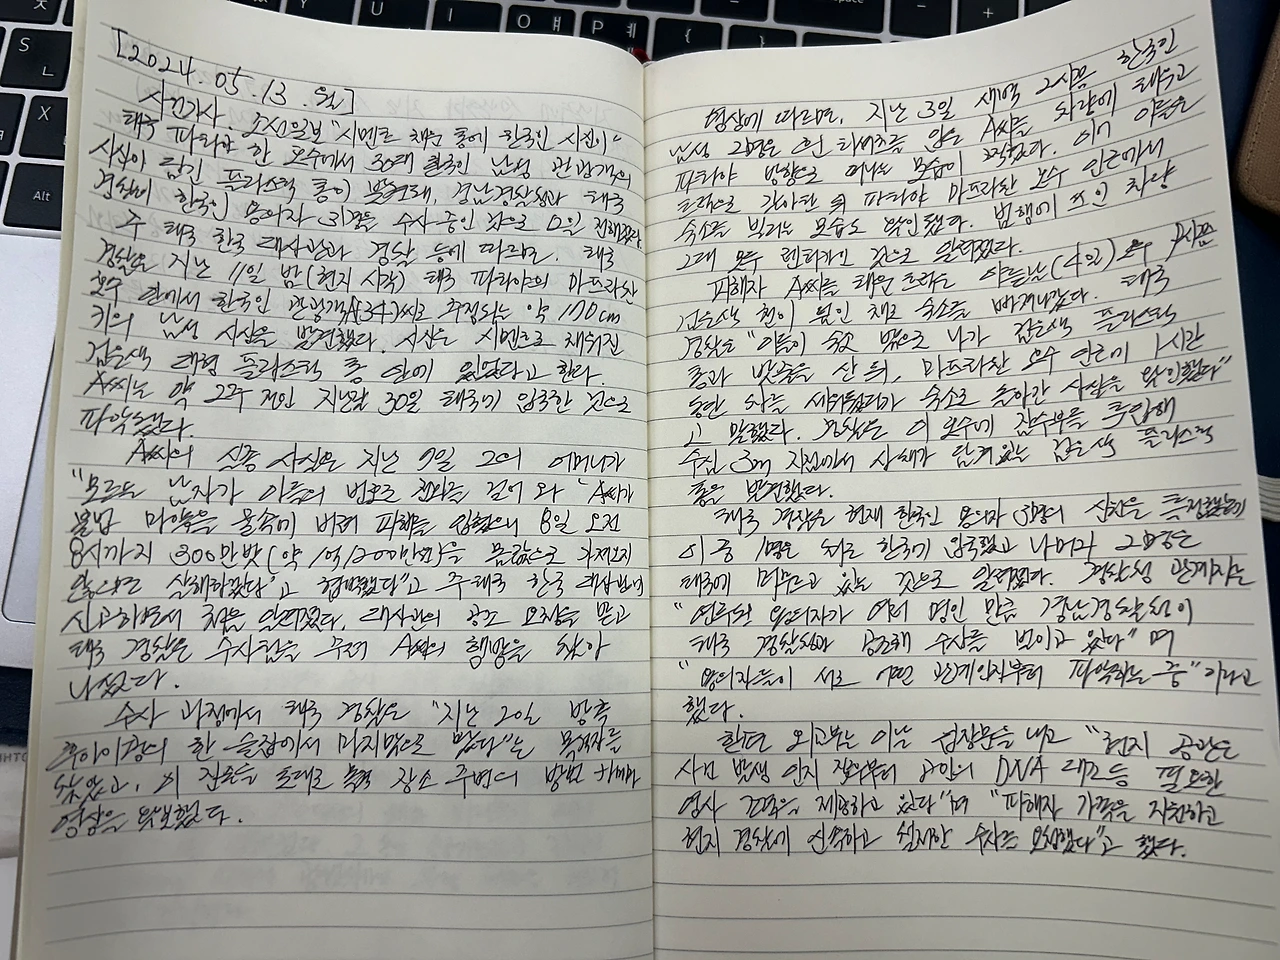 [2024.05.13.월]
사건기사. 조선일보 "시멘트 채운 통에 한국인 시신이"
태국 파타야 한 호수에서 30대 한국인 남성 관광객의
시신이 담긴 플라스틱 통이 발견돼, 경남경찰청과 태국
경찰이 한국인 용의자 3명을 수사 중인 것으로 12일 전해졌다.
주 태국 한국 대사관과 경찰 등에 따르면, 태국
경찰은 지난 11일 밤(현지 시각) 태국 파타야의 마프라찬
호수 안에서 한국인 관광객A(34)씨로 추정되는 약 170cm
키의 남성 시신을 발견했다. 시신은 시멘트로 채워진
검은색 대형 플라스틱 통 안에 있었다고 한다.
A씨는 약 2주 전인 지난달 30일 태국에 입국한 것으로
파악됐다.
A씨의 실종 사실은 지난 7일 그의 어머니가
"모르는 남자가 아들의 번호로 전화를 걸어 와 'A씨가
불법 마약을 물속에 버려 피해를 입혔으니 8일 오전
8시까지 300만밧(약 1억1200만원)을 몸값으로 가져오지
않으면 살해하겠다'고 협박했다"고 주태국 한국 대사관에
신고하면서 처음 알려졌다. 대사관의 공조 요청을 받고
태국 경찰은 수사팀을 꾸려 A씨의 행방을 찾아
나섰다.
수사 과정에서 태국 경찰은 "지난 2일 방콕
후아이쾅의 한 술집에서 마지막으로 봤다"는 목격자를
찾았고, 이 진술을 토대로 목격 장소 주변의 방범 카메라
영상을 확보했다.
영상에 따르면, 지난 3일 새벽 2시쯤 한국인
남성 2명은 흰 티셔츠를 입은 A씨를 차량에 태우고
파타야 방향으로 떠나는 모습이 찍혔다. 이어 이들은
트럭으로 갈아탄 뒤 파타야 마프라찬 호수 인근에서
숙소를 빌리는 모습도 확인됐다. 범행에 쓰인 차량
2대 모두 렌터카인 것으로 알려졌다.
피해자 A씨를 태운 트럭은 이튿날(4일) 오후 9시쯤
검은색 천이 덮인 채로 숙소를 빠져나갔다. 태국
경찰은 "이들이 숙소 밖으로 나가 검은색 플라스틱
통과 밧줄을 산 뒤, 마프라찬 호수 인근에 1시간
동안 차를 세워뒀다가 숙소로 돌아간 사실을 확인했다"
고 말했다. 경찰은 이 호수에 잠수부를 투입해
수심 3m 지점에서 시체가 담겨 있는 검은색 플라스틱
통을 발견했다.
태국 경찰은 현재 한국인 용의자 3명의 신원을 특정했는데
이 중 1명은 최근 한국에 입국했고 나머지 2명은
태국에 머무르고 있는 것으로 알려졌다. 경찰청 관계자는
"연루된 용의자가 여러 명인 만큼 경남경찰청이
태국 경찰청과 공조해 수사를 벌이고 있다"며
"용의자들이 서로 어떤 관계인지부터 파악하는 중"이라고
했다.
한편 외교부는 이날 입장문을 내고 "현지 공관은
사건 발생 인지 직후부터 고인의 DNA 대조 등 필요한
영사 조력을 제공하고 있다"며 "피해자 가족을 지원하고
현지 경찰에 신속하고 철저한 수사를 요청했다"고 했다.